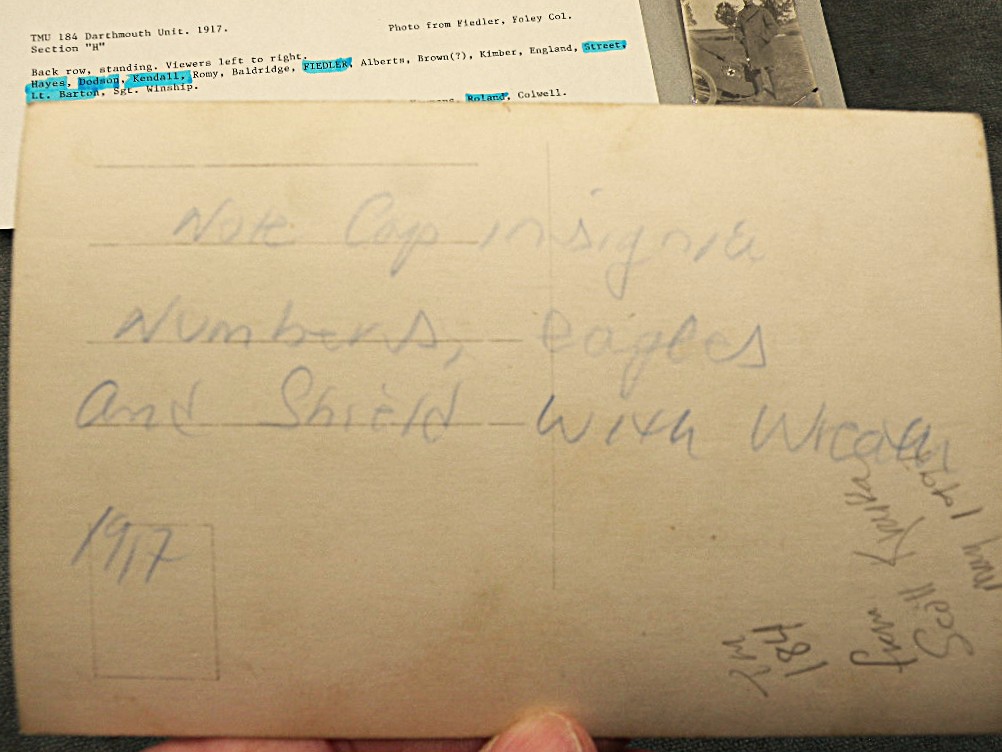 TMU 184 Darthmouth Unit. 1917.
Photo from Fiedler, Foley Col.
Section "H"
Back row, standing. Viewers left to right.
Hayes, Dodson, Kendall, Romy, Baldridge, FIEDLER, Alberts, Brown(?), Kimber, England, Street,
Lt. Barton, Sgt. Winship.
Roland, Colwell.
Note Cap insignia
Numbers, Eagles
And Shield With Wreath
1917
TM
184
from
Scott
May